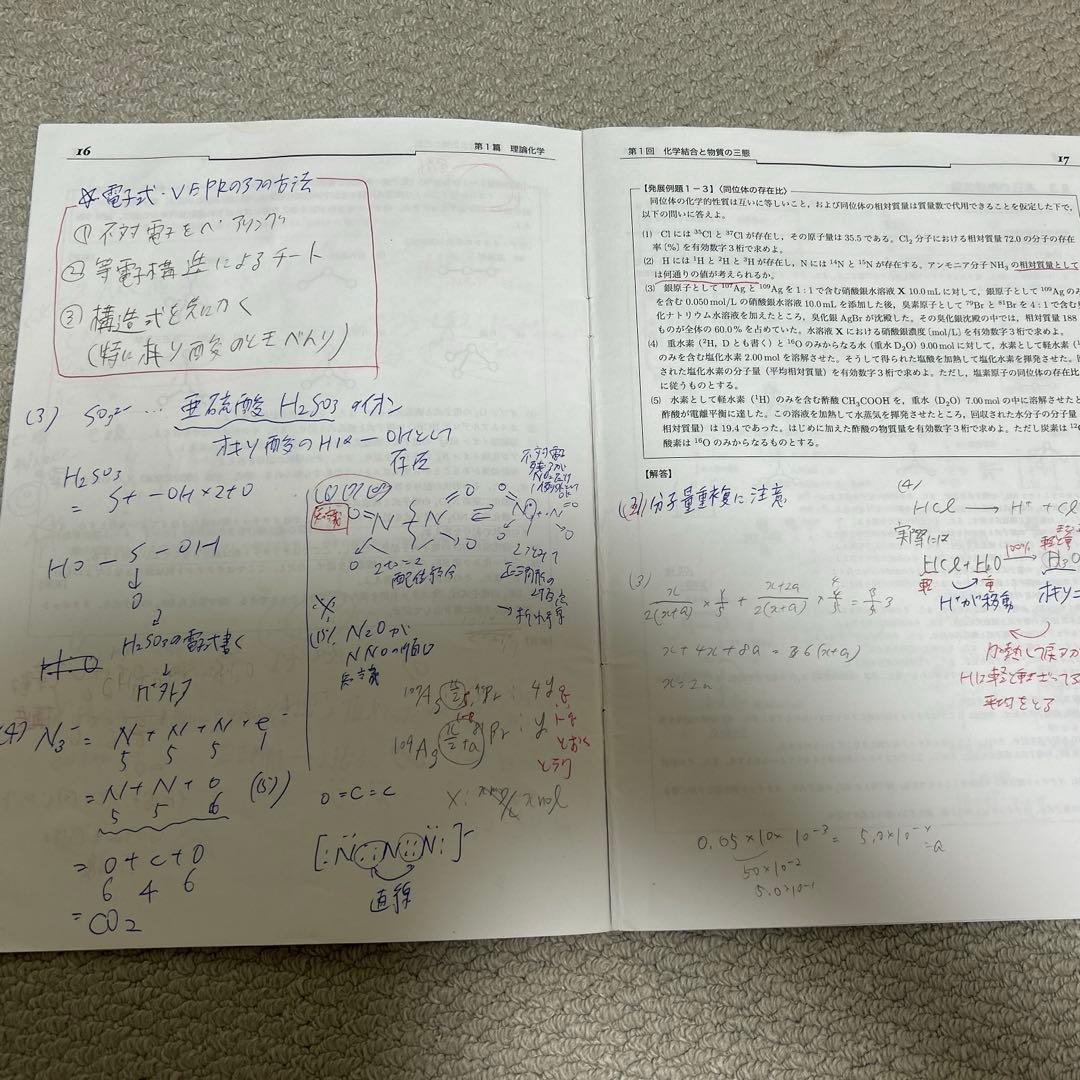 16
第1篇 理論化学
☆電子式・VEPRの3つの方法
① 不対電子をペアリング
② 等電子構造によるチート
③ 構造式を先にかく
(特にオキソ酸のときべんり)
(3) SO₃²⁻ … 亜硫酸 H₂SO₃ のイオン
オキソ酸のHは-OHとして
存在
H₂SO₃
= S + -OH×2+O
HO - S - OH
↓
O
H₂SO₃の電子式書く
↓
(4) N₃⁻ = N + N + N + e⁻
5 5 5 1
= N + N + O (15)
5 5 6
= O + C + O
6 4 6
= CO₂
不対電子
配位結合
正三角形の
→折れ線
(15) N₂Oが
NNOの順は
知識
¹⁰⁷Ag Br : 4y
¹⁰⁹Ag Br : y
とおく
とラク
O = C = C
[:N::N::N:]⁻
直線
第1回 化学結合と物質の三態
17
【発展例題1-3】〈同位体の存在比〉
同位体の化学的性質は互いに等しいこと,および同位体の相対質量は質量数で代用できることを仮定した下で,
以下の問いに答えよ。
(1) Clには³⁵Clと³⁷Clが存在し,その原子量は35.5である。Cl₂分子における相対質量72.0の分子の存在
率〔%〕を有効数字3桁で求めよ。
(2) Hには¹Hと²Hと³Hが存在し,Nには¹⁴Nと¹⁵Nが存在する。アンモニア分子NH₃の相対質量として
は何通りの値が考えられるか。
(3) 銀原子として¹⁰⁷Agと¹⁰⁹Agを1:1で含む硝酸銀水溶液X 10.0mLに対して,銀原子として¹⁰⁹Agのみ
を含む0.050mol/Lの硝酸銀水溶液10.0mLを添加した後,臭素原子として⁷⁹Brと⁸¹Brを4:1で含む臭
化ナトリウム水溶液を加えたところ,臭化銀AgBrが沈殿した。その臭化銀沈殿の中では,相対質量188
ものが全体の60.0%を占めていた。水溶液Xにおける硝酸銀濃度〔mol/L〕を有効数字3桁で求めよ。
(4) 重水素(²H, Dとも書く)と¹⁶Oのみからなる水(重水D₂O) 9.00molに対して,水素として軽水素(¹
のみを含む塩化水素2.00molを溶解させた。そうして得られた塩酸を加熱して塩化水素を揮発させた。
された塩化水素の分子量(平均相対質量)を有効数字3桁で求めよ。ただし,塩素原子の同位体の存在比
に従うものとする。
(5) 水素として軽水素(¹H)のみを含む酢酸CH₃COOHを,重水(D₂O) 7.00molの中に溶解させたと
酢酸が電離平衡に達した。この溶液を加熱して水蒸気を揮発させたところ,回収された水分子の分子量
相対質量)は19.4であった。はじめに加えた酢酸の物質量を有効数字3桁で求めよ。ただし炭素は¹²
酸素は¹⁶Oのみからなるものとする。
【解答】
分子量重複に注意
(3)
x/2(x+a) × 1/5 + x+2a/2(x+a) × 4/5 = 3/5
x + 4x + 8a = 6(x+a)
x = 2a
(4)
HCl → H⁺ + Cl
実際には
HCl + H₂O 100% →
軽 重
H⁺が移動
加熱して戻る
Hは軽と重まざってる
平均をとる
0.05×10×10⁻³ =
50×10⁻²
5.0×10⁻¹